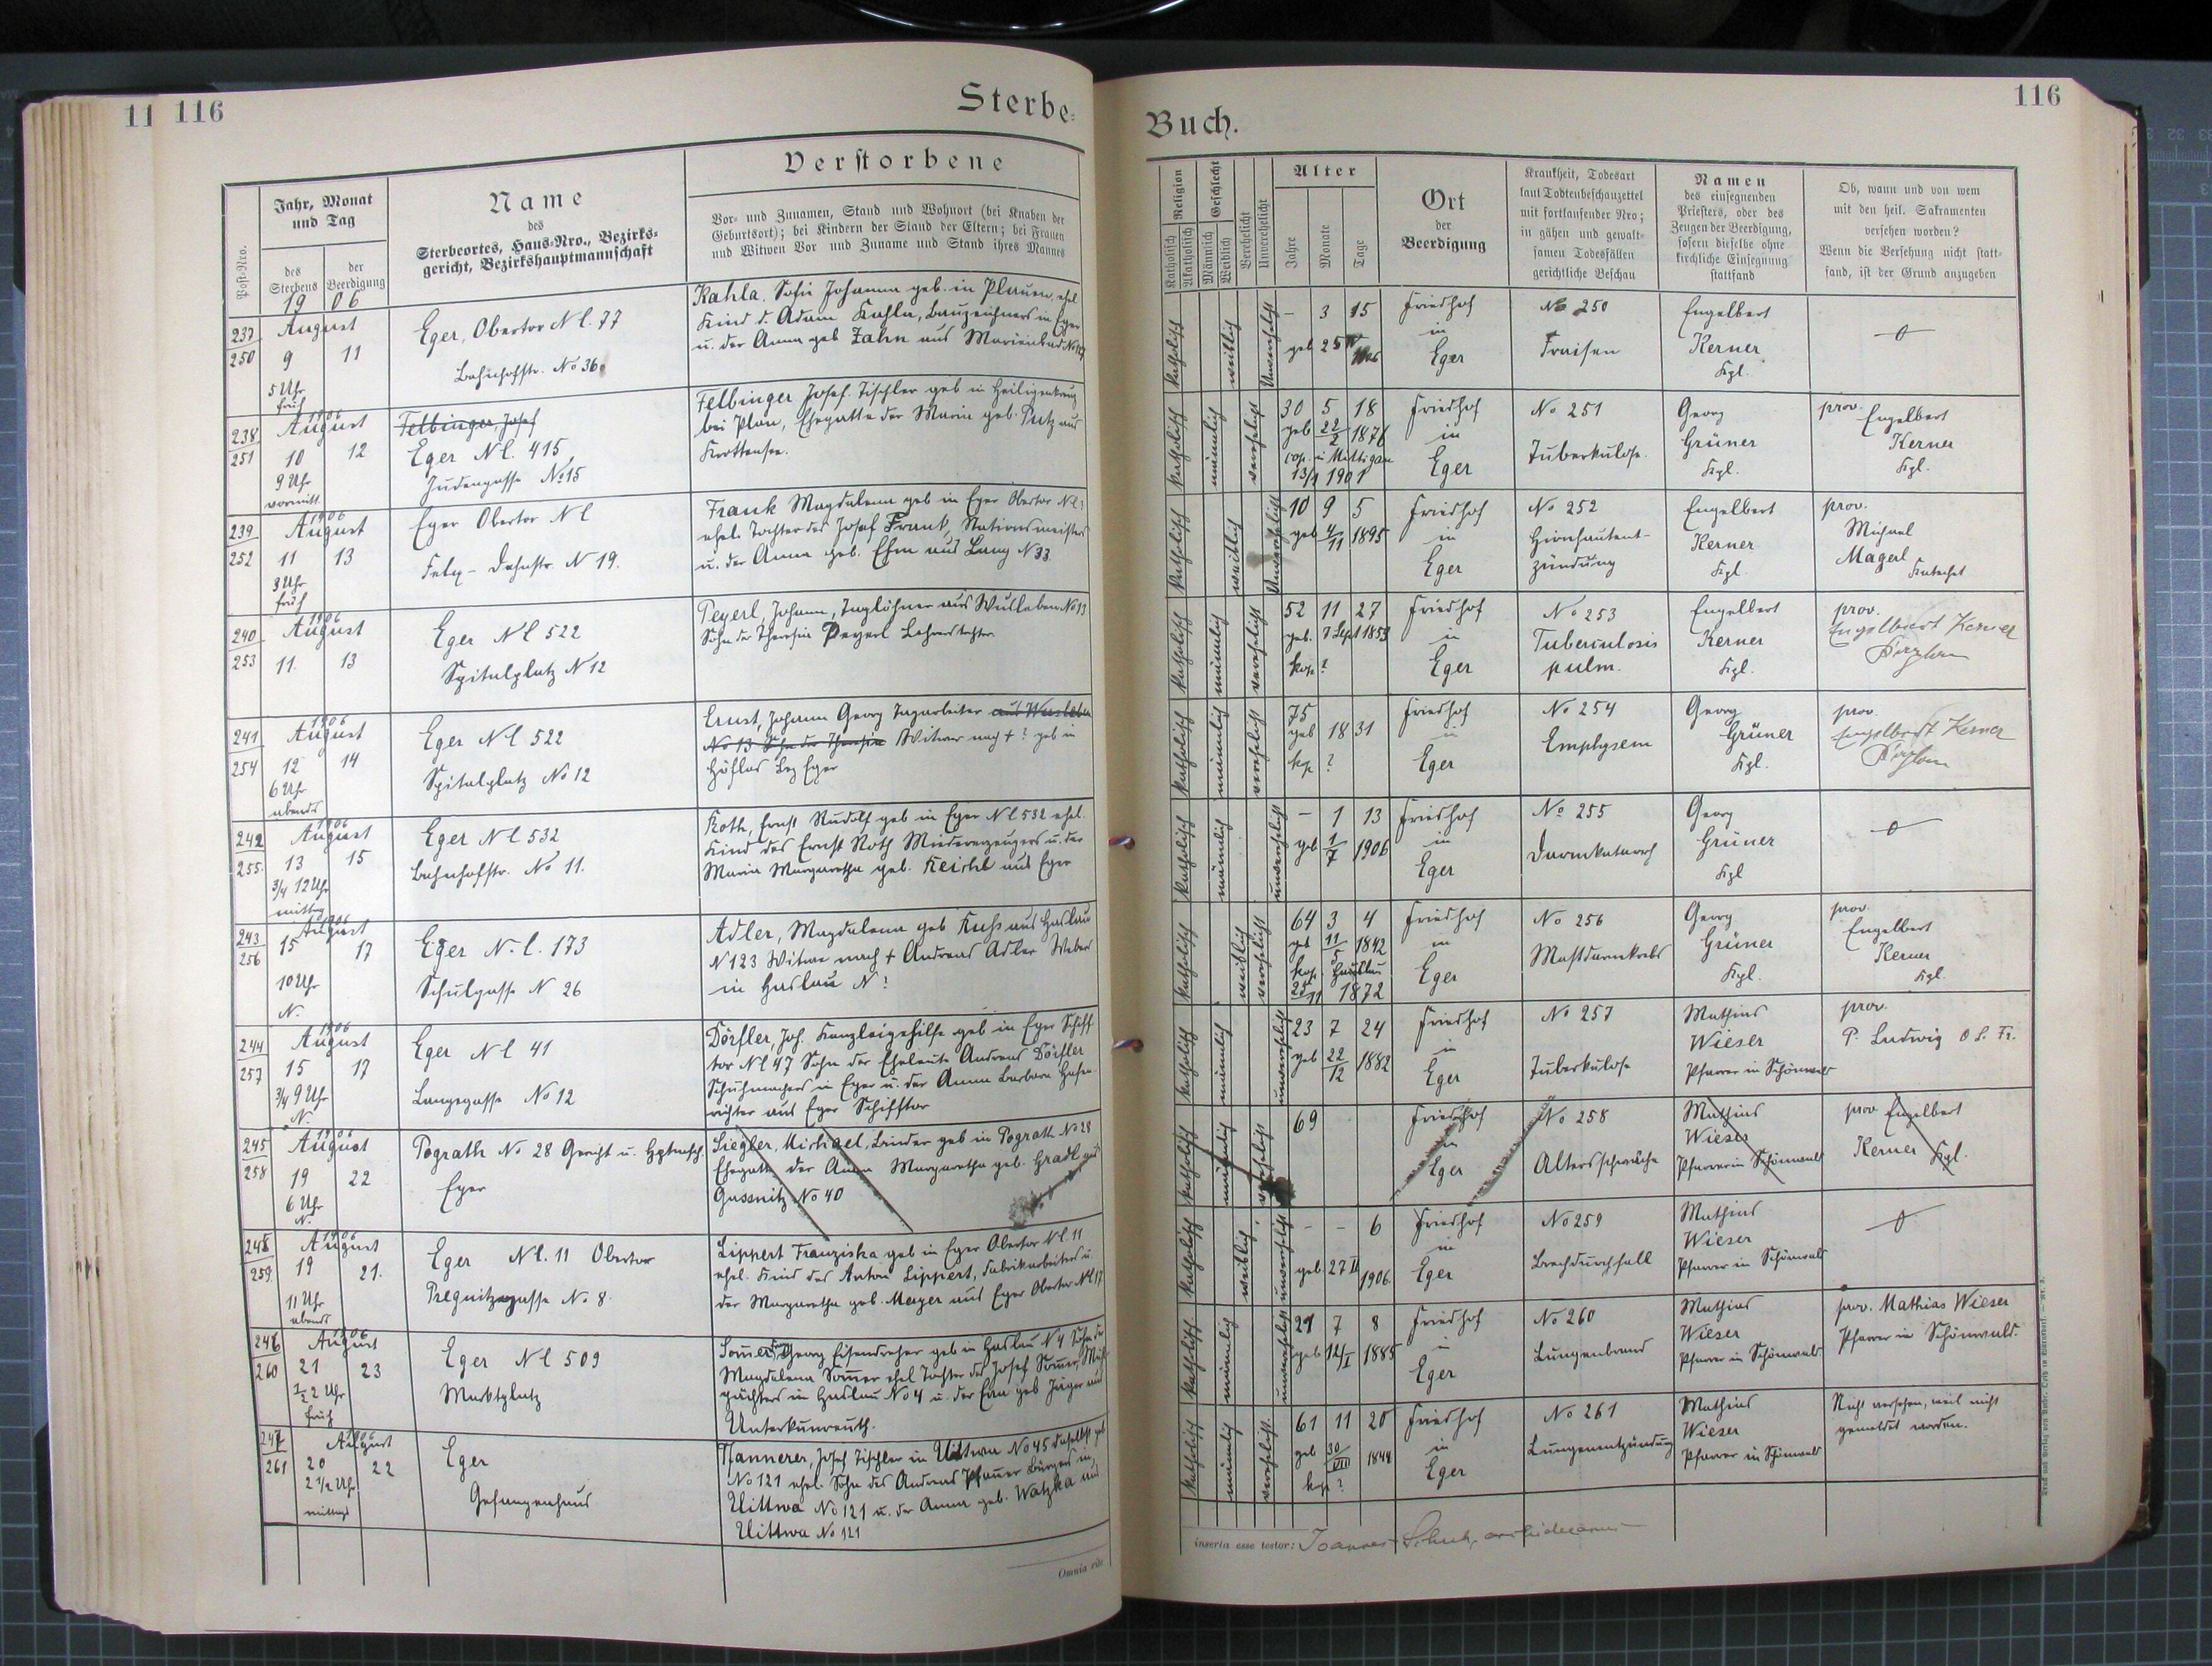 11 116
Sterbe-
Jahr, Monat und Tag
Name
des
Sterbeortes, Haus-Nro., Bezirks-
gericht, Bezirkshauptmannschaft
Verstorbene
Vor- und Zunamen, Stand und Wohnort (bei Knaben der
Geburtsort); bei Kindern der Stand der Eltern; bei Frauen
und Witwen Vor und Zuname und Stand ihres Mannes
Post-Nro.
des Sterbens
der Beerdigung
19 06
237
250
August
9 11
5 Uhr
früh
Eger, Obertor N C. 77
Bahnhofstr. No 36
Kahla, Sofie Johanna geb. in Plauen, ehel
Kind d. Adam Kahla, Bauzeichners in Eger
u. der Anna geb Zahn aus Marienbad
238
251
1906
August
10 12
9 Uhr
vormitt.
Felbinger, Josef
Eger N C. 415
Judengasse No 15
Felbinger Josef. Tischler geb in Heiligenkreuz
bei Plan, Ehegatte der Maria geb. Putz aus
Krottensee.
239
252
1906
August
11 13
3 Uhr
früh
Eger Obertor N C
Felix-Dahnstr. N 19.
Frank Magdalena geb in Eger Obertor N C ?
ehel. Tochter des Josef Frank, Stationsmeisters
u. der Anna geb. Ehm aus Lang N 33
240
253
1906
August
11. 13
Eger N C 522
Spitalplatz N 12
Peyerl, Johann, Taglöhner aus No 13
Sohn der Theresia Peyerl
241
254
1906
August
12 14
6 Uhr
abends
Eger N C 522
Spitalplatz No 12
Ernst, Johann Georg Tagarbeiter aus
No 13 Sohn der Theresia Witwer nach + ? geb in
Höflas Bez Eger
242
255.
1906
August
13 15
3/4 12 Uhr
mittag
Eger N C 532
Bahnhofstr. No 11.
Roth, Ernst Rudolf geb in Eger N C 532 ehel.
Kind des Ernst Roth Miedererzeugers u. der
Maria Margaretha geb. Reichl aus Eger
243
256
1906
August
15 17
10 Uhr
N.
Eger N. C. 173
Schulgasse N 26
Adler, Magdalena geb Kuhs aus Haslau
N 123 Witwe nach + Andreas Adler Weber
in Haslau N ?
244
257
1906
August
15 17
3/4 9 Uhr
N.
Eger N C 41
Langegasse No 12
Dörfler, Joh. Kanzleigehilfe geb in Eger Schiff
tor N C 47 Sohn der Eheleute Andreas Dörfler
Schuhmachers in Eger u. der Anna Barbara
aus Eger Schifftor
245
258
1906
August
19 22
6 Uhr
N.
Pograth No 28 Gericht u. Hptmsch.
Eger
Siegler, Michael, geb in Pograth No 28
Ehegatte der Anna Margaretha geb. Gradl aus
Gassnitz No 40
245
259.
1906
August
19 21.
11 Uhr
abends
Eger N C. 11 Obertor
Pregnitzgasse No 8.
Lippert Franziska geb in Eger Obertor N C. 11
ehel. Kind des Anton Lippert, Fabrikarbeiters u.
der Margaretha geb. Mayer aus Eger Obertor N C 17
246
260
1906
August
21 23
1/2 2 Uhr
früh
Eger N C 509
Marktplatz
Sommer Georg Eisendreher geb in Haslau N 4 Sohn der
Magdalena Sommer ehel Tochter des Josef Sommer,
pächters in Haslau No 4 u. der Eva geb Jäger aus
Unterkunreuth.
247
261
1906
August
20 22
2 1/2 Uhr
mittags
Eger
Gefangenhaus
Hannerer, Josef Tischler in Uittwa No 45 daselbst geb
No 121 ehel. Sohn des Andreas Bürgers in
Uittwa No 121 u. der Anna geb. Watzka aus
Uittwa No 121
Omnia rite
Buch.
116
Religion
Katholisch
Akatholisch
Geschlecht
Männlich
Weiblich
Verehelicht
Unverehelicht
Alter
Jahre
Monate
Tage
Ort
der
Beerdigung
Krankheit, Todesart
laut Todtenbeschauzettel
mit fortlaufender Nro;
in gähen und gewalt-
samen Todesfällen
gerichtliche Beschau
Namen
des einsegnenden
Priesters, oder des
Zeugen der Beerdigung,
sofern dieselbe ohne
kirchliche Einsegnung
stattfand
Ob, wann und von wem
mit den heil. Sakramenten
versehen worden?
Wenn die Versehung nicht statt-
fand, ist der Grund anzugeben
katholisch weiblich unverehelicht
- 3 15
geb 25 IV 1906
Friedhof
in
Eger
No 250
Fraisen
Engelbert
Kerner
Kpl.
katholisch männlich verehelicht
30 5 18
geb 22/2 1876
cop. in
13/1 1901
Friedhof
in
Eger
No 251
Tuberkulose.
Georg
Grüner
Kpl.
prov.
Engelbert
Kerner
Kpl.
katholisch weiblich unverehelicht
10 9 5
geb 4/11 1895
Friedhof
in
Eger
No 252
Hirnhautent-
zündung
Engelbert
Kerner
Kpl.
prov.
Michael
Magerl
Katechet
katholisch männlich verehelicht
52 11 27
geb. 7 Sept 1853
kop ?
Friedhof
in
Eger
No 253
Tuberculosis
pulm.
Engelbert
Kerner
Kpl.
prov.
Engelbert Kerner
Kaplan
katholisch männlich verehelicht
75
geb 18 31
kp ?
Friedhof
in
Eger
No 254
Emphysem
Georg
Grüner
Kpl.
prov.
Engelbert Kerner
Kaplan
katholisch männlich unverehelicht
- 1 13
geb 1/7 1906
Friedhof
in
Eger
No 255
Darmkatarrh
Georg
Grüner
Kpl
katholisch weiblich verehelicht
64 3 4
geb 11/5 1842
kop. Haslau
25/11 1872
Friedhof
in
Eger
No 256
Mastdarmkrebs
Georg
Grüner
Kpl.
prov.
Engelbert
Kerner
Kpl.
katholisch männlich unverehelicht
23 7 24
geb 22/12 1882
Friedhof
in
Eger
No 257
Tuberkulose
Mathias
Wieser
Pfarrer in Schönwald
prov.
P. Ludwig O. S. Fr.
katholisch männlich verehelicht
69
Friedhof
in
Eger
No 258
Altersschwäche
Mathias
Wieser
Pfarrer in Schönwald
prov Engelbert
Kerner Kpl.
katholisch weiblich unverehelicht
- - 6
geb 27 1906
Friedhof
in
Eger
No 259
Brechdurchfall
Mathias
Wieser
Pfarrer in Schönwald
katholisch männlich unverehelicht
21 7 8
geb 12/I 1885
Friedhof
in
Eger
No 260
Lungenbrand
Mathias
Wieser
Pfarrer in Schönwald
prov. Mathias Wieser
Pfarrer in Schönwald.
katholisch männlich verehelicht
61 11 20
geb 30/VIII 1844
kop ?
Friedhof
in
Eger
No 261
Lungenentzündung
Mathias
Wieser
Pfarrer in Schönwald
Nicht versehen, weil nicht
gemeldet worden.
inserta esse testor: Joannes archidecanus